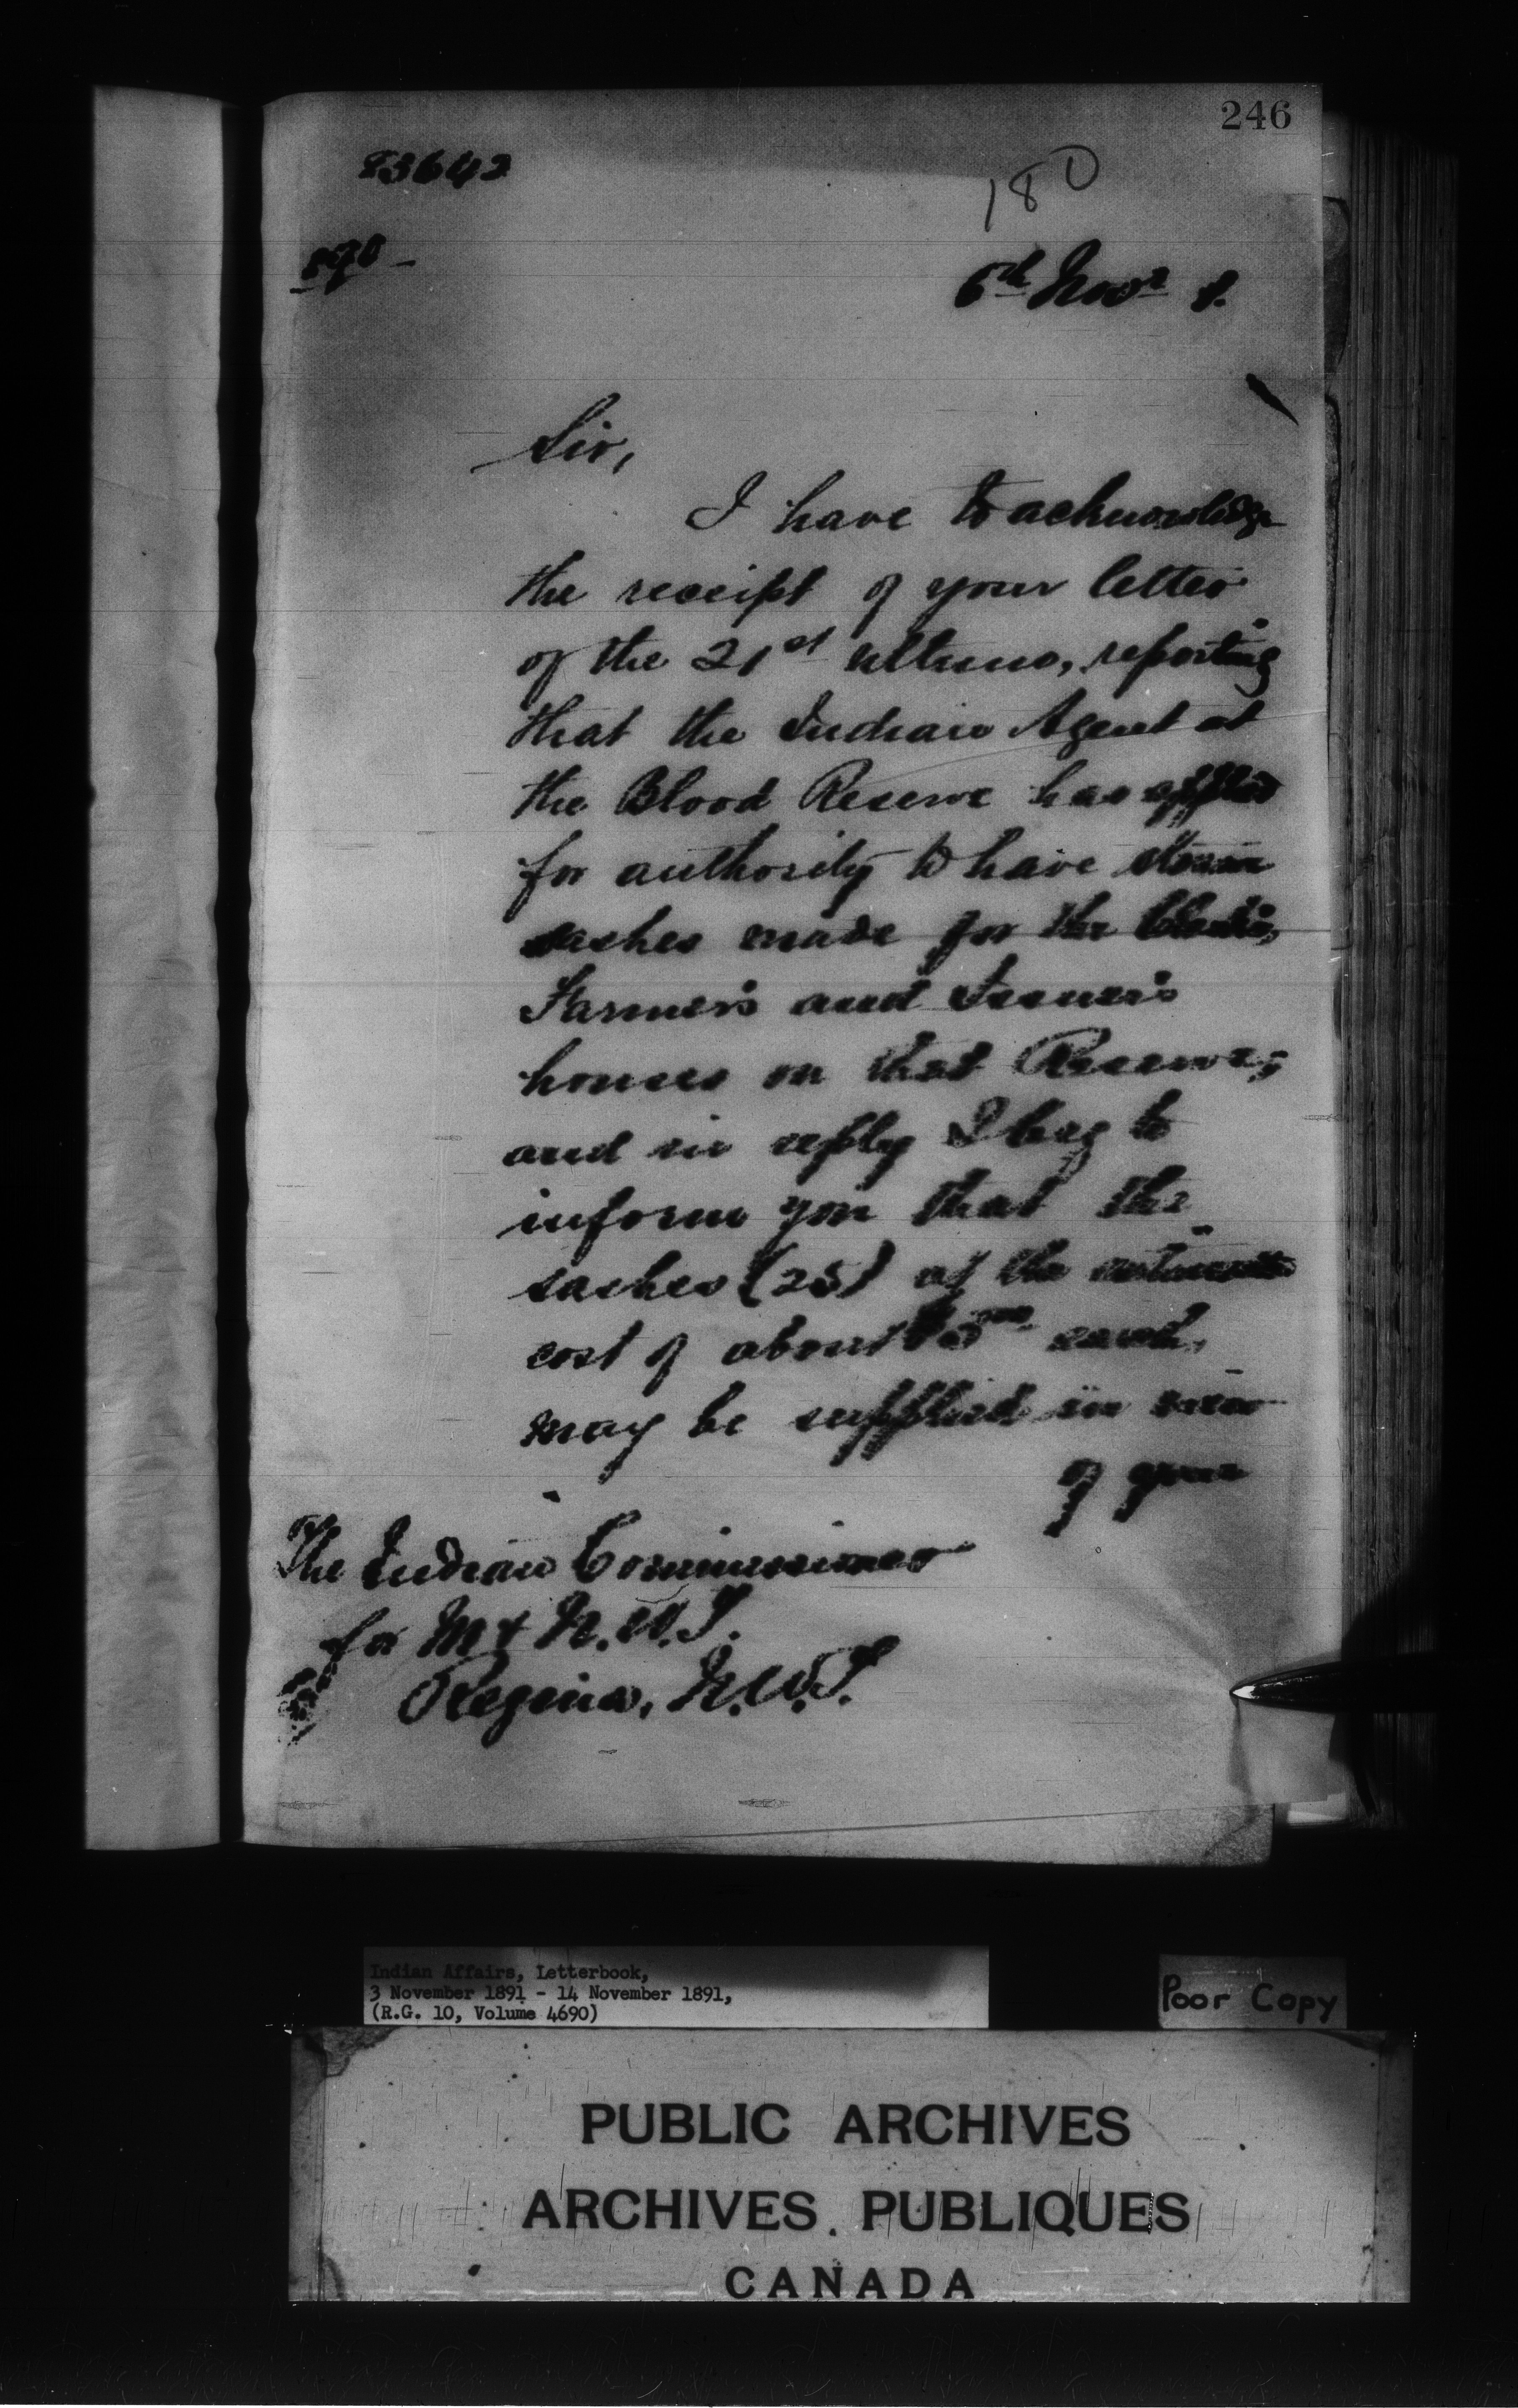 246
83642
180
6th Novr 1.
Sir,
I have to acknowledge
the receipt of your letter
of the 21st ultimo, reporting
that the Indian Agent at
the Blood Reserve has applied
for authority to have storm
sashes made for the Clerk's,
Farmer's and Issuer's
houses on that Reserve;
and in reply I beg to
inform you that the
sashes (25) at the estimated
cost of about $3.00 each,
may be supplied in view
of your
The Indian Commissioner
for M & N.W.T.
Regina, N.W.T.
Indian Affairs, Letterbook,
3 November 1891 - 14 November 1891,
(R.G. 10, Volume 4690)
Poor Copy
PUBLIC ARCHIVES
ARCHIVES PUBLIQUES
CANADA